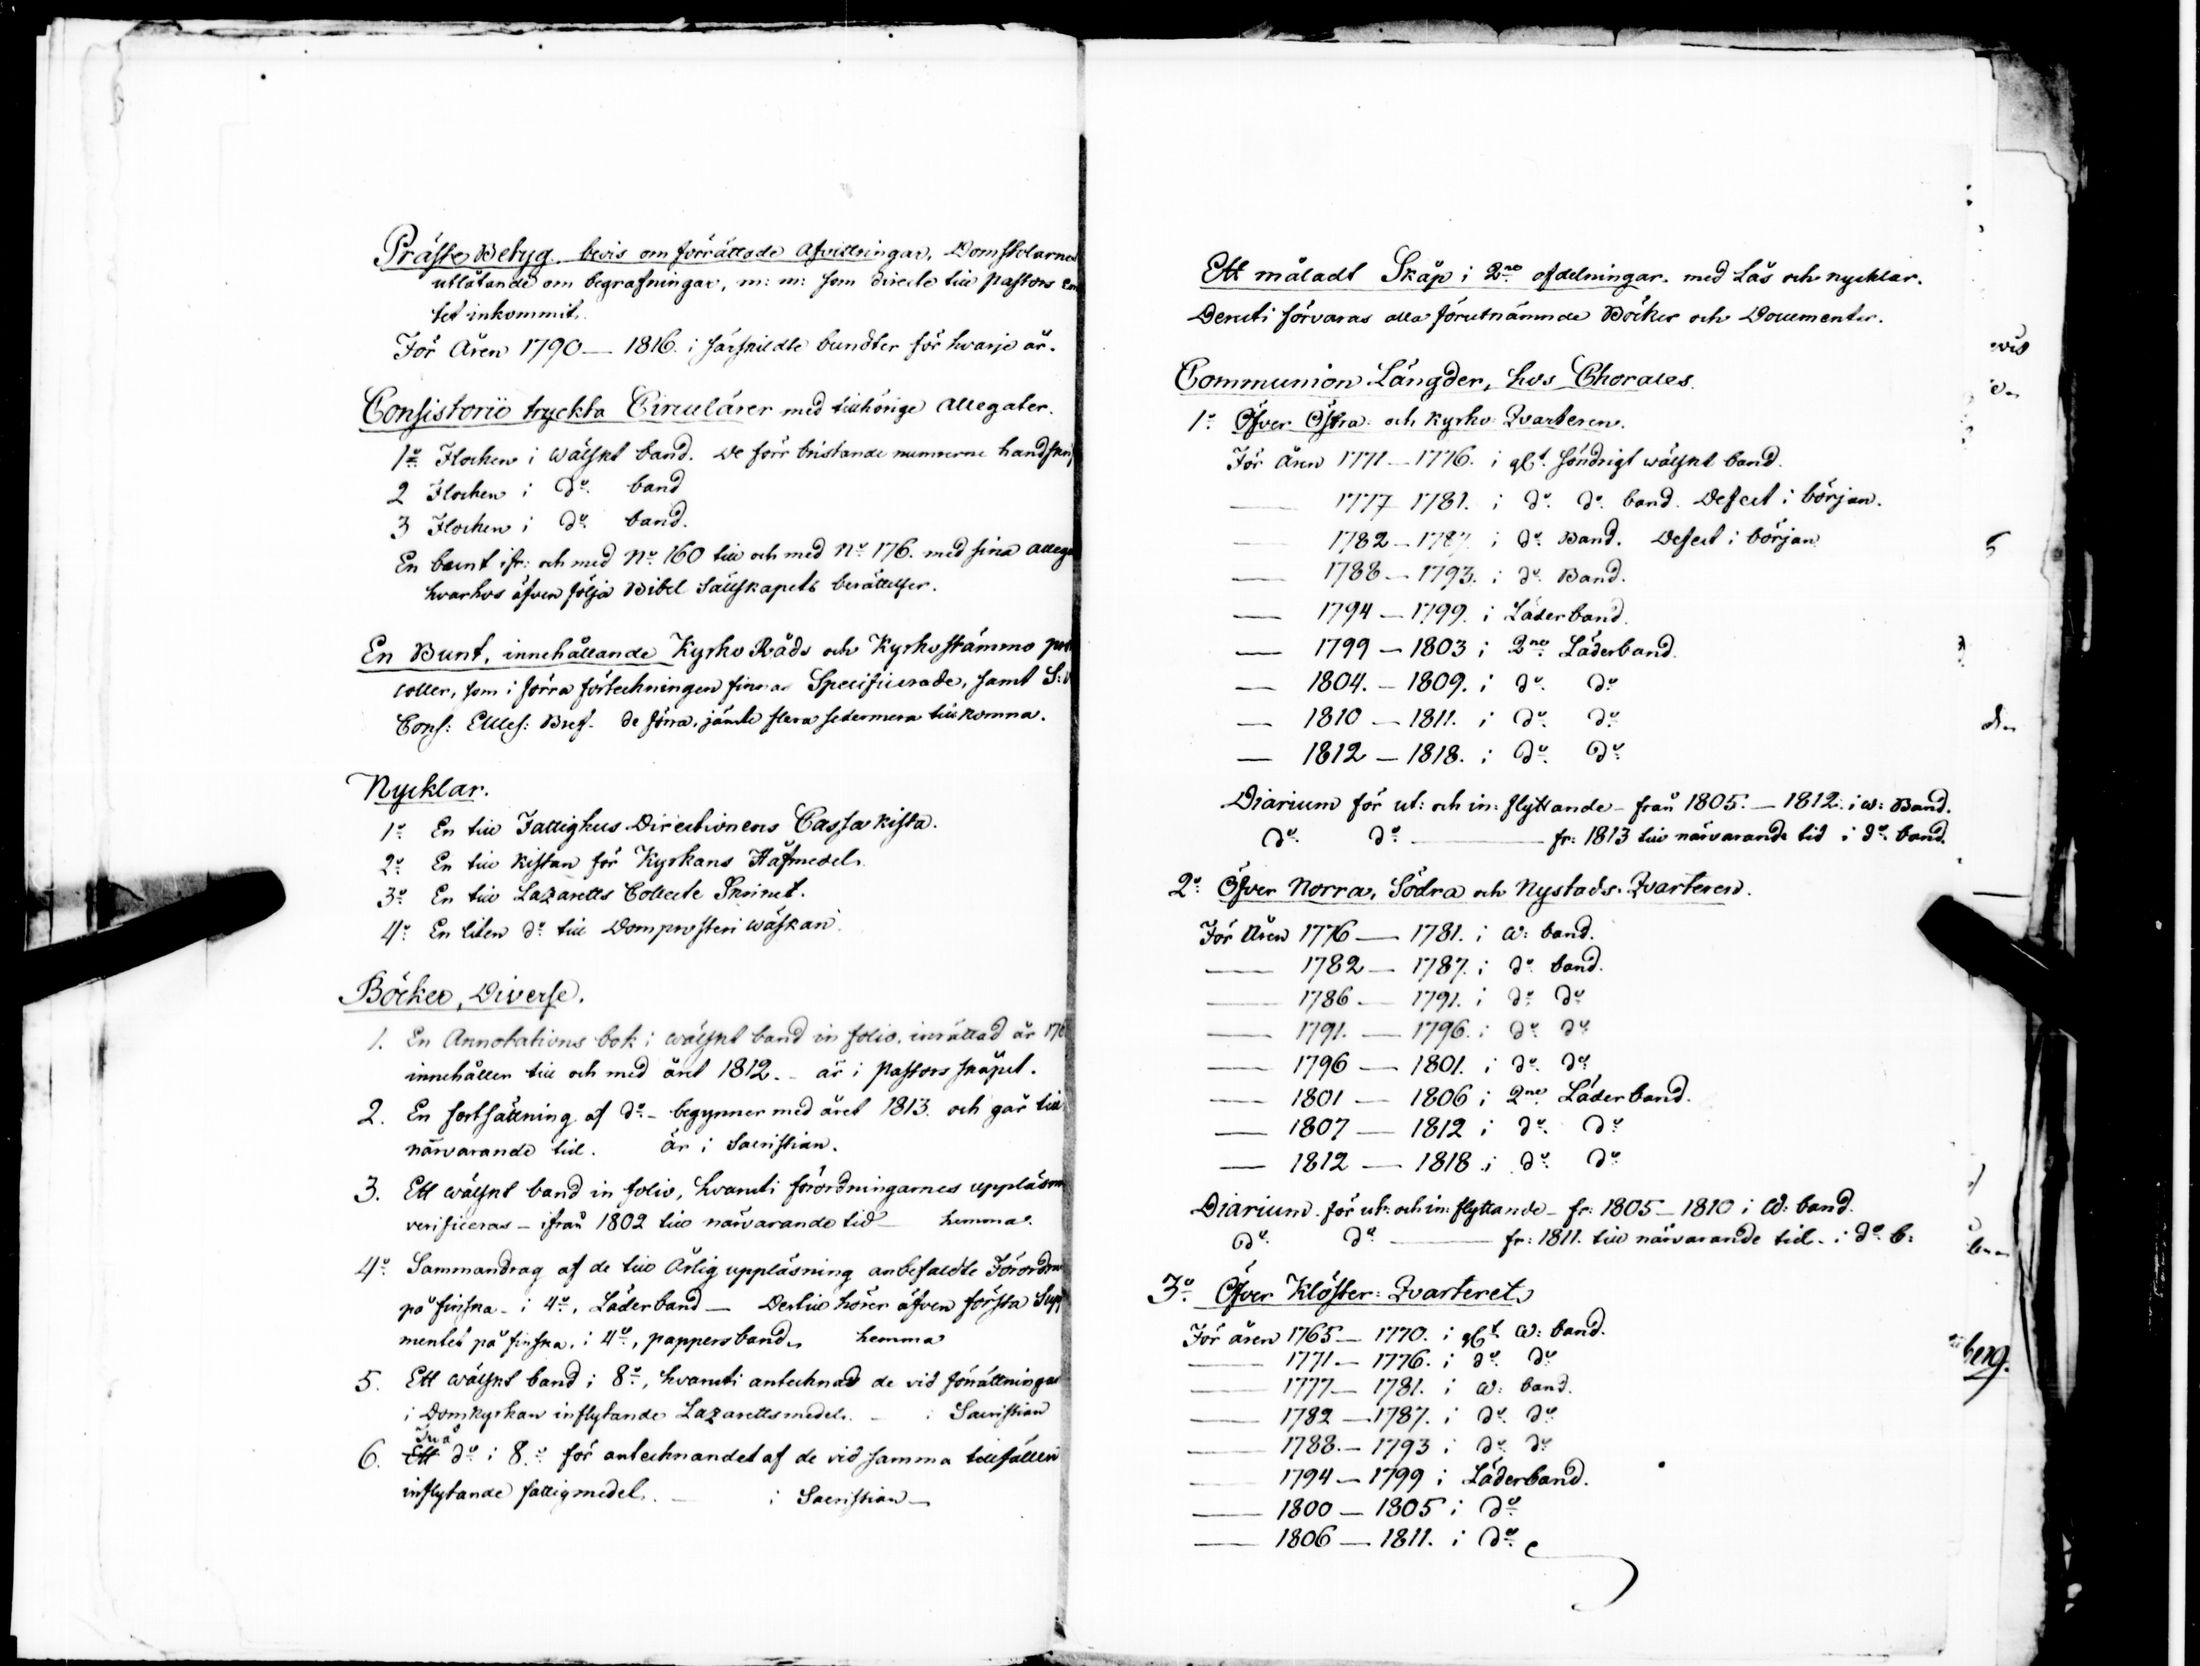 Präste Betyg, bevis om förrättade Afvittringar, Domstolarnes
utlåtande om begrafningar, m: m: som directe till Pastors Con
tet inkommit.
För Åren 1790 — 1816. i särskildte bundter för hvarje år.
Consistorii tryckta Circulärer med tillhörige Allegater.
1o Flocken i Wälskt band. De förr bristande numrerne handskrif
2 Flocken i do. band
3 Flocken i do. band.
En bunt ifr: och med No. 160 till och med No. 176. med sina Allega
hvarhos äfven följa Bibel Sällskapets berättelser.
En Bunt, innehållande Kyrko Råds och Kyrkostämmo pro
coller, som i förra förtechningen finnas Specificerade, samt S: V
Cons: Eccles: Bref. de förra, jämte flera sedermera tillkomna.
Nycklar.
1o En till Fattighus Directionens Cassa kista.
2o. En till kistan för Kyrkans Håfmedel.
3o. En till Lazaretts Collecte Skrinet.
4o. En liten do till Domprosteri Wäskan.
Böcker, Diverse.
1. En Annotations bok i wälskt band in folio, inrättad år 176
innehåller till och med året 1812. – är i Pastors skåpet.
2. En fortsättning af do – begynner med året 1813. och går till
närvarande tid. är i Sacristian.
3. Ett wälskt band in folio, hvaruti förordningarnes uppläsn
verificeras – ifrån 1802 till närvarande tid – hemma.
4o. Sammandrag af de till Årlig uppläsning anbefaldte Förordn
på finska – i 4o, Läderband – Dertill hörer äfven första Supp
mentet på finska, i 4o, pappersband, hemma
5. Ett wälskt band i 8o, hvaruti antecknad de vid förrättningar
i Domkyrkan inflytande Lazarettsmedel. – i Sacristian
Två
6. Ett do i 8.o för antecknandet af de vid samma tillfällen
inflytande fattigmedel. – i Sacristian –
Ett måladt Skåp i 2ne afdelningar. med Lås och nycklar.
Deruti förvaras alla förutnämnde Böcker och Documenter.
Communion Längder, hos Chorales.
1o. Öfver Östra och Kyrko Qvarteren.
För Åren 1771 – 1776. i glt. söndrigt wälskt band.
— 1777 1781. i do. do. band. Defect i början.
— 1782 – 1787. i do. Band. Defect i början
— 1788 – 1793. i do. Band.
— 1794 – 1799. i Läderband.
— 1799 – 1803 i 2ne Läderband.
— 1804. – 1809. i do. do
— 1810 – 1811. i do. do.
— 1812 – 1818. i do. do.
Diarium för ut: och in: flyttande – från 1805. – 1812. i w: Band.
do. do. — fr: 1813 till närvarande tid i do. band.
2o. Öfver Norra, Södra och Nystads Qvarteren.
För Åren 1776 — 1781. i W: band.
— 1782 — 1787. i do. band.
— 1786 — 1791. i do. do
— 1791. — 1796. i do. do.
— 1796 — 1801. i do. do.
— 1801 — 1806 i 2ne Läderband.
— 1807 — 1812 i do. do.
— 1812 — 1818. i do. do.
Diarium. för ut: och in: flyttande – fr: 1805 – 1810 i W: band.
do. do. — fr: 1811. till närvarande tid. i do. b:
3o. Öfver Klöster: Qvarteret
För åren 1765 – 1770. i glt W: band.
— 1771 – 1776. i do. do
— 1777 – 1781. i W: band.
— 1782 – 1787. i do. do.
— 1788. – 1793 i do. do.
— 1794 – 1799 i Läderband.
— 1800 – 1805 i do
— 1806 – 1811. i do.
berg.